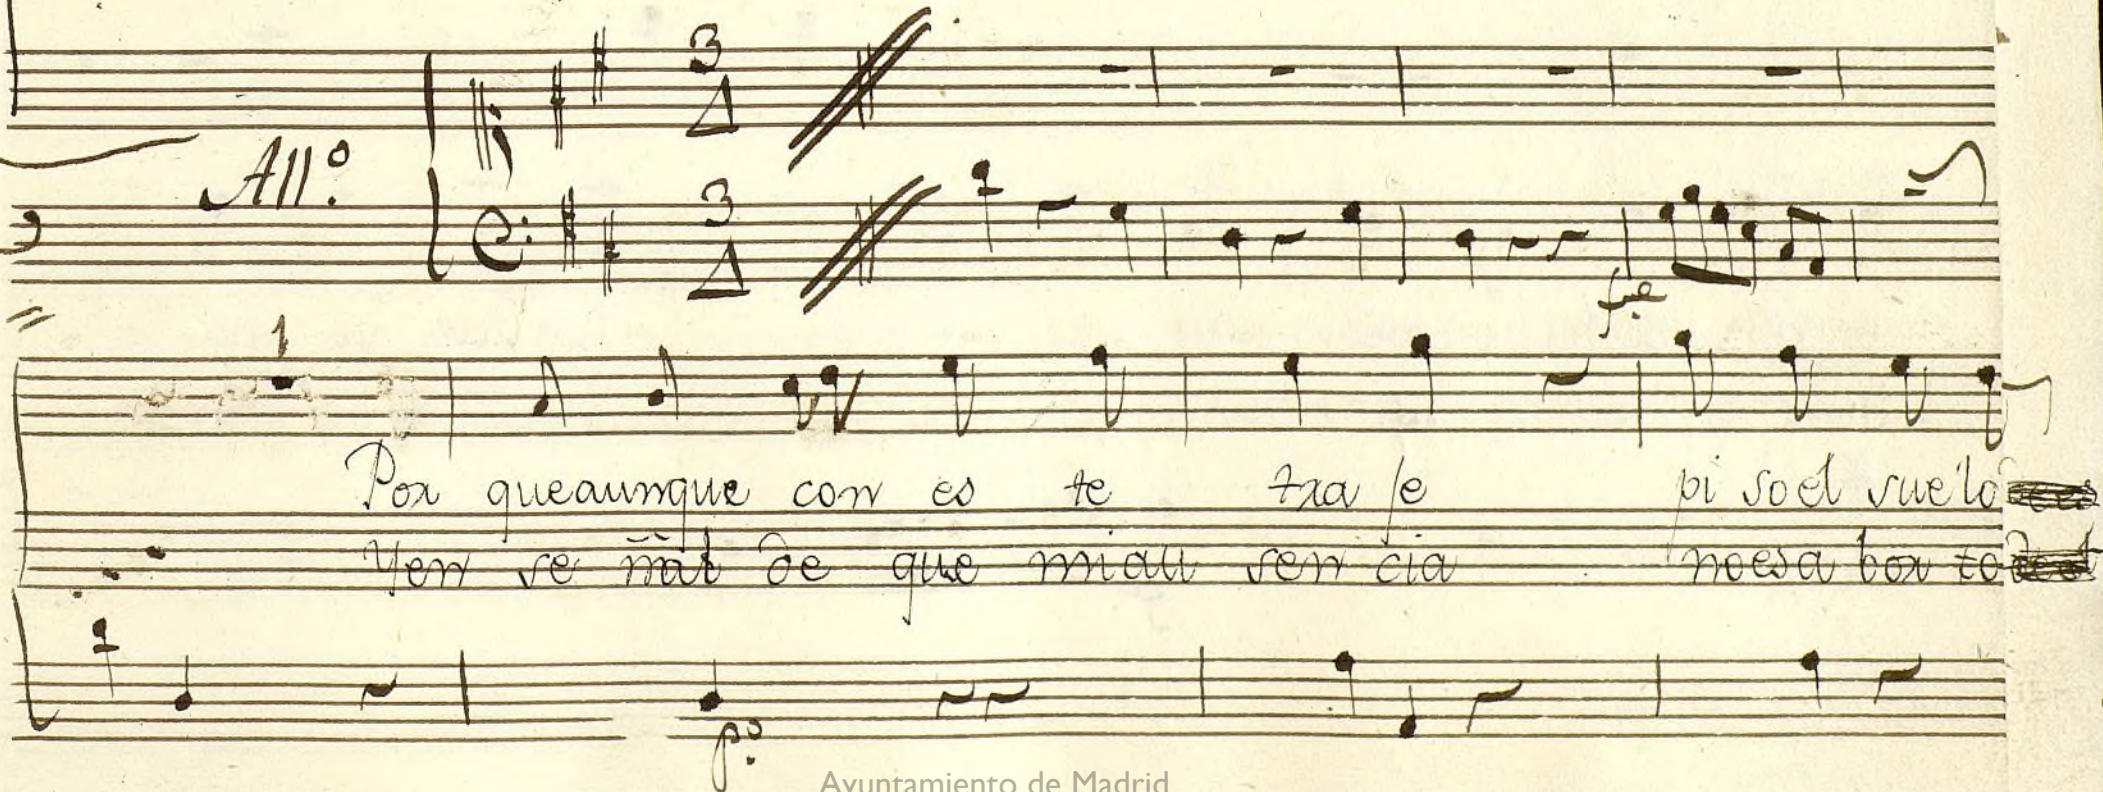 3
4
All.º
3
4
fᵉ
1
Por queaunque con es te tra je pi so el suelo
Yen se ñal de que miau sen cia noesa bor to
p.º
Ayuntamiento de Madrid